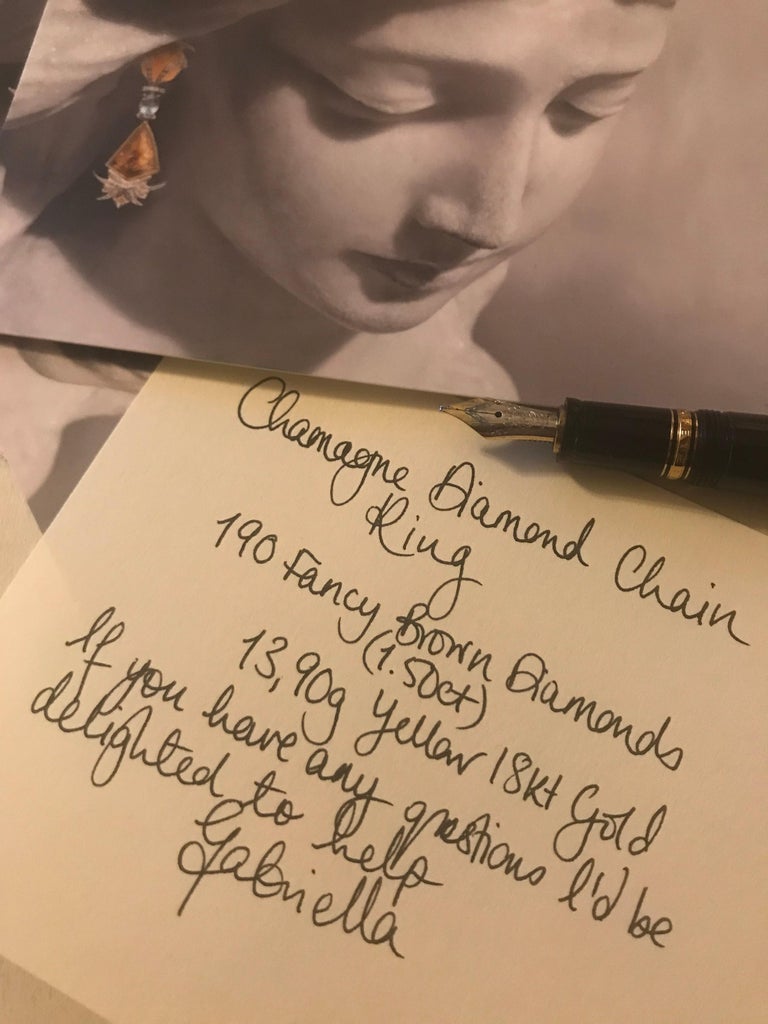 Chamagne Diamond Chain
Ring
190 Fancy Brown Diamonds
(1.50ct)
13,90g Yellow 18kt Gold
If you have any questions I'd be
delighted to help
Gabriella